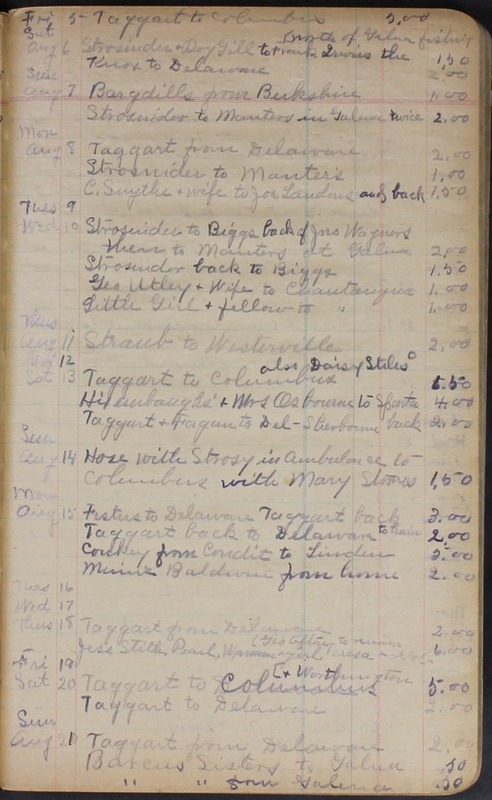 Fri 5 - Taggart to Columbus 5.00
Sat north of Galena fishing
Aug 6 Strosnider & Doy Gill to Frank Irwins the 1,50
Knox to Delaware 2.00
Sun
Aug 7 Bargdills from Berkshire 1.00
Strosnider to Manters in Galena twice 2,00
Mon
Aug 8 Taggart from Delaware 2.00
Strosnider to Manters 1.00
C. Smythe + wife to Joe Landons and back 1,50
Tues 9
Wed 10 Strosnider to Biggs back of Jno Wagners
then to Manters at Galena 2.00
Strosnider back to Biggs 1.50
Geo Utley + Wife to Chautauqua 1.00
Little Girl + fellow to " 1.00
Thurs
Aug 11 Straub to Westerville 2.00
12 also Daisy Stiles
Sat 13 Taggart to Columbus 5.50
+ Mrs Osbourne to Sparta 4.00
Taggart + Fagan to Del - Sherbourne back 2.00
Sun
Aug 14 Hose with Strosy in Ambulance to
Columbus with Mary Sloans 1,50
Mon
Aug 15 Festus to Delaware Taggart back 3.00
Taggart back to Delaware to train 2.00
Conkey from Condit to Linden 3.00
Baldwin from home 2.00
Tues 16
Wed 17
Thus 18 Taggart from Delaware 2.00
to reunion
Jess Stille, Pearl, Teresa 6.00
Fri 19 [+ Worthington
Sat 20 Taggart to Columbus 5.00
Taggart to Delaware 2.00
Sun
Aug 21 Taggart from Delaware 2.00
Barcus Sisters to Galena .50
" " from Galena .50